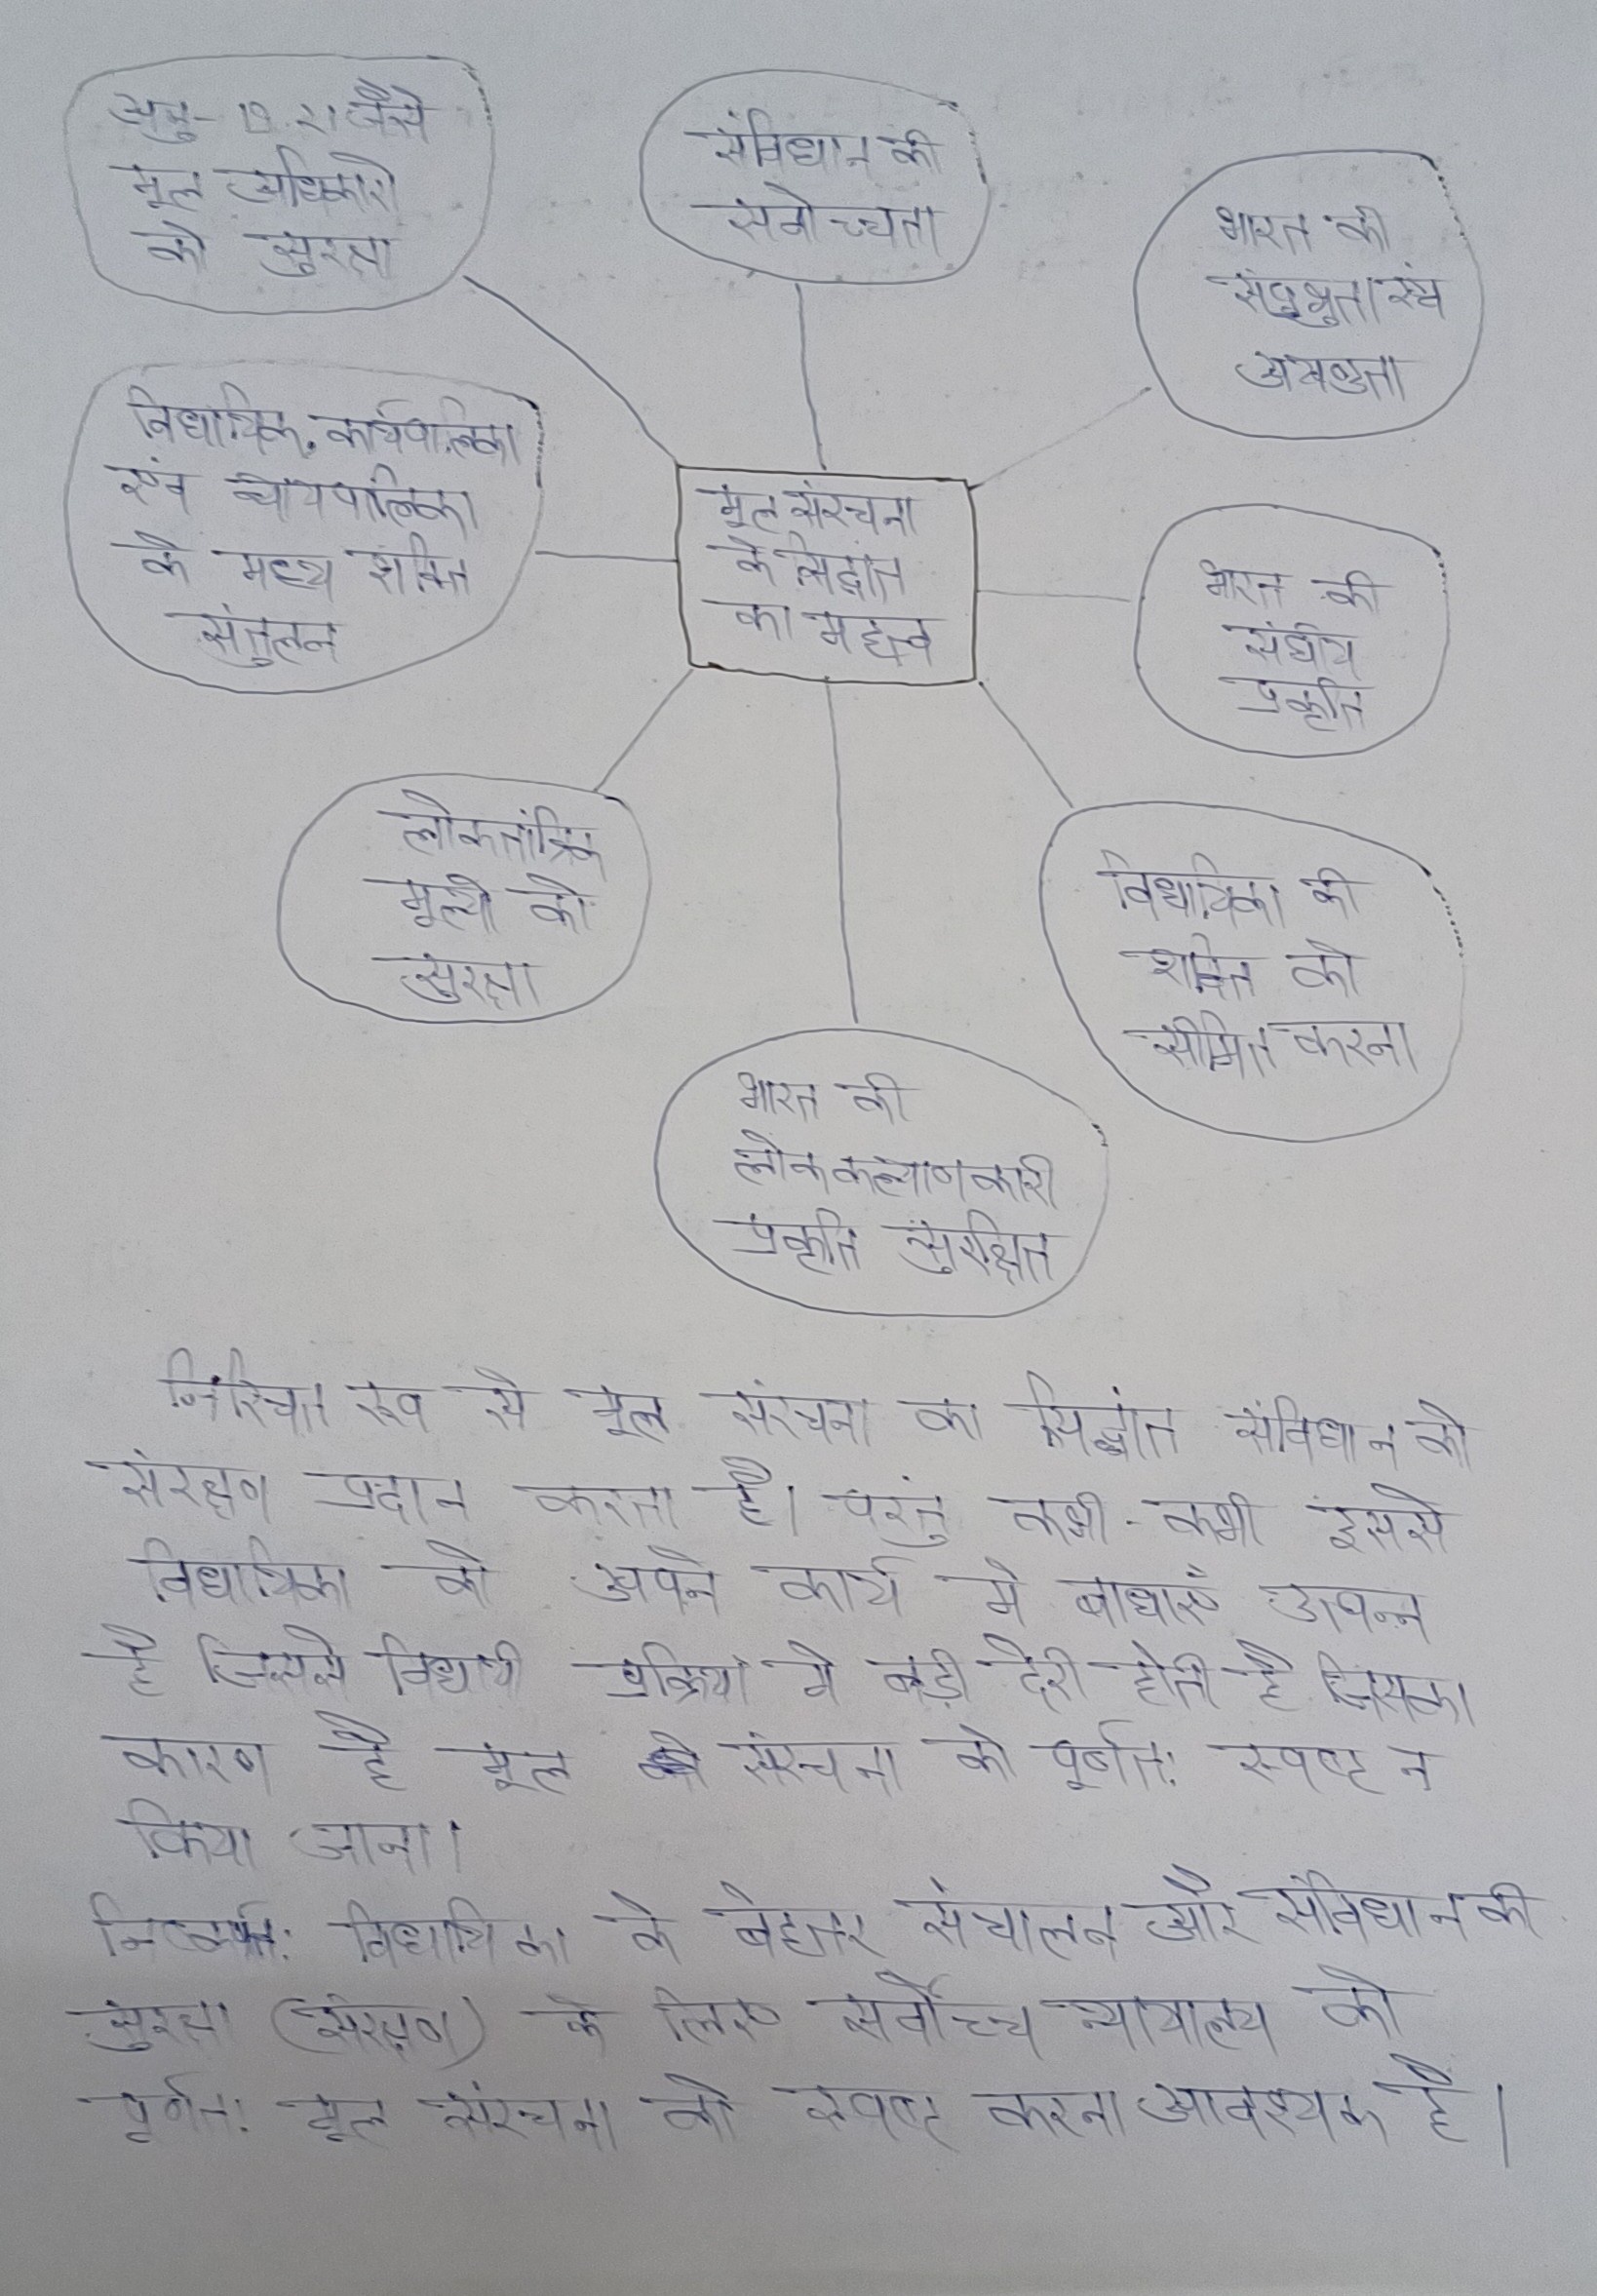 अनु- 19.21 जैसे
मूल अधिकारो
को सुरक्षा
संविधान की
सर्वोच्चता
भारत की
संप्रभुता एंव
अखण्डता
विधायिका, कार्यपालिका
एंव न्यायपालिका
के मध्य शक्ति
संतुलन
मूल संरचना
के सिद्धांत
का महत्व
भारत की
संघीय
प्रकृति
लोकतांत्रिक
मूल्यो को
सुरक्षा
विधायिका की
शक्ति को
सीमित करना
भारत की
लोककल्याणकारी
प्रकृति सुरक्षित
निश्चित रूप से मूल संरचना का सिद्धांत संविधान को
संरक्षण प्रदान करता है। परंतु कभी-कभी इससे
विधायिका को अपने कार्य मे बाधाएँ उत्पन्न
है जिससे विधायी प्रक्रिया मे बड़ी देरी होती है जिसका
कारण है मूल संरचना को पूर्णतः स्पष्ट न
किया जाना।
निष्कर्षतः विधायिका के बेहतर संचालन और संविधान की
सुरक्षा (संरक्षण) के लिए सर्वोच्च न्यायालय को
पूर्णतः मूल संरचना को स्पष्ट करना आवश्यक है।